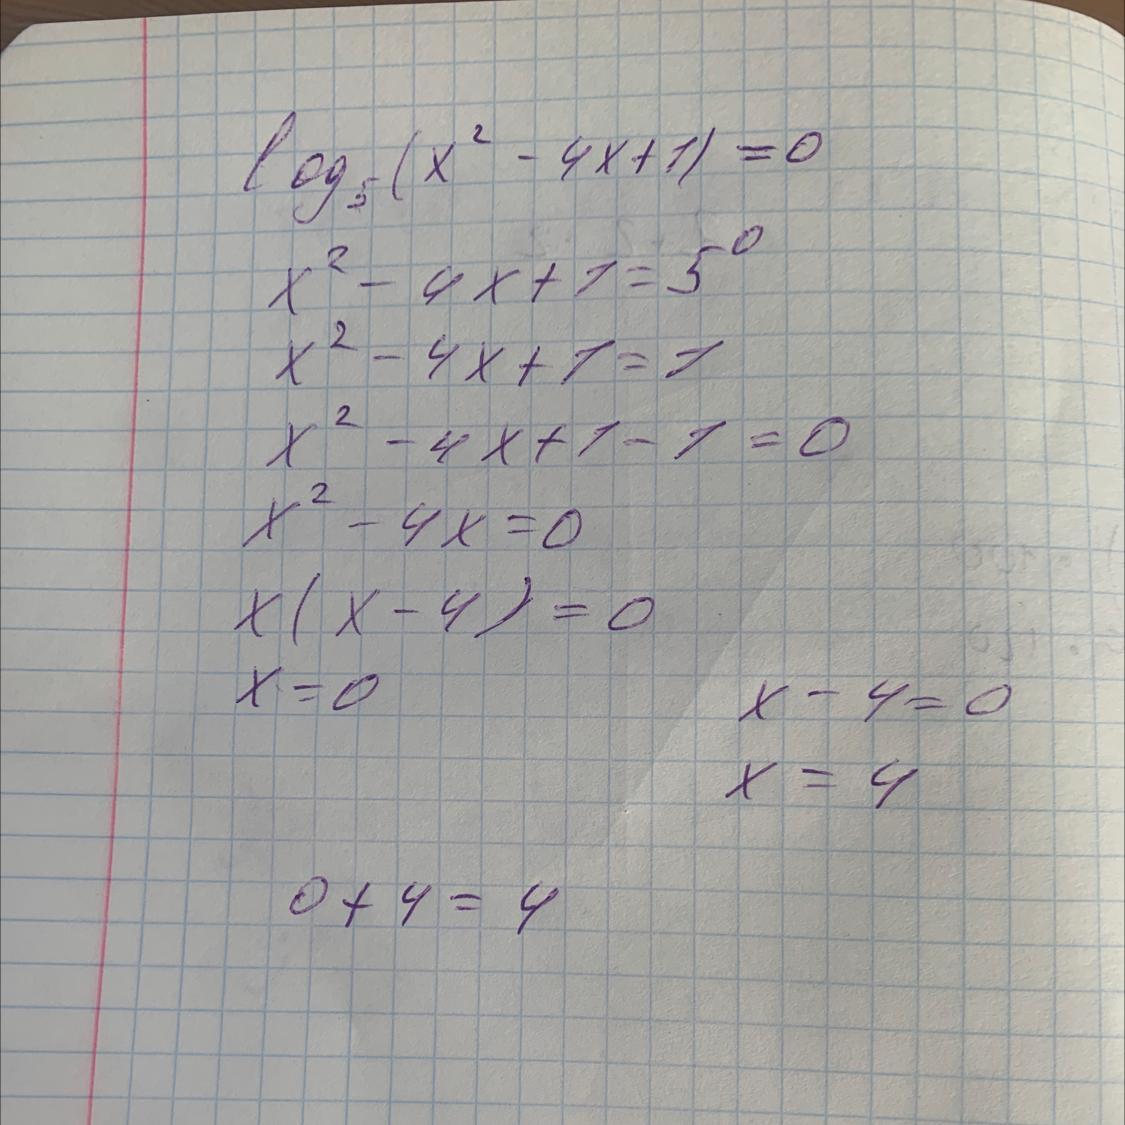 log₅(x² - 4x+1) = 0
x² - 4x+1 = 5⁰
x² - 4x+1 = 1
x² - 4x+1 - 1 = 0
x² - 4x = 0
x(x - 4) = 0
x = 0
x - 4 = 0
x = 4
0 + 4 = 4